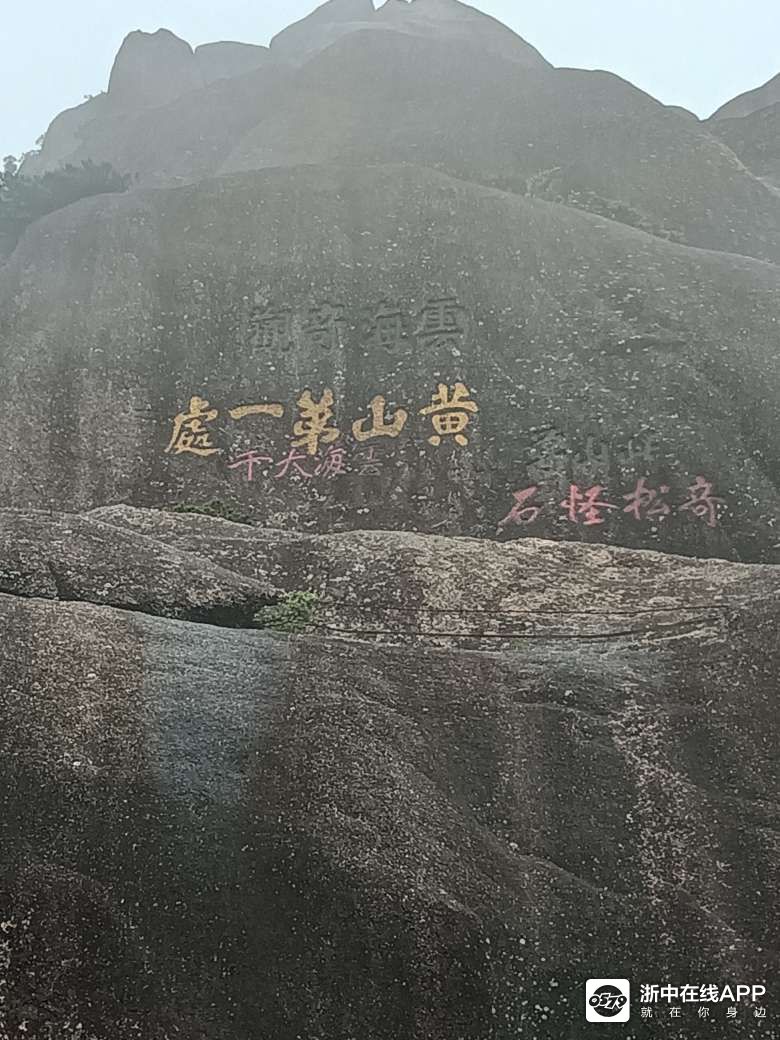 雲海奇觀
黄山第一處
雲海大千
奇松怪石
0579
浙中在线APP
就在你身边